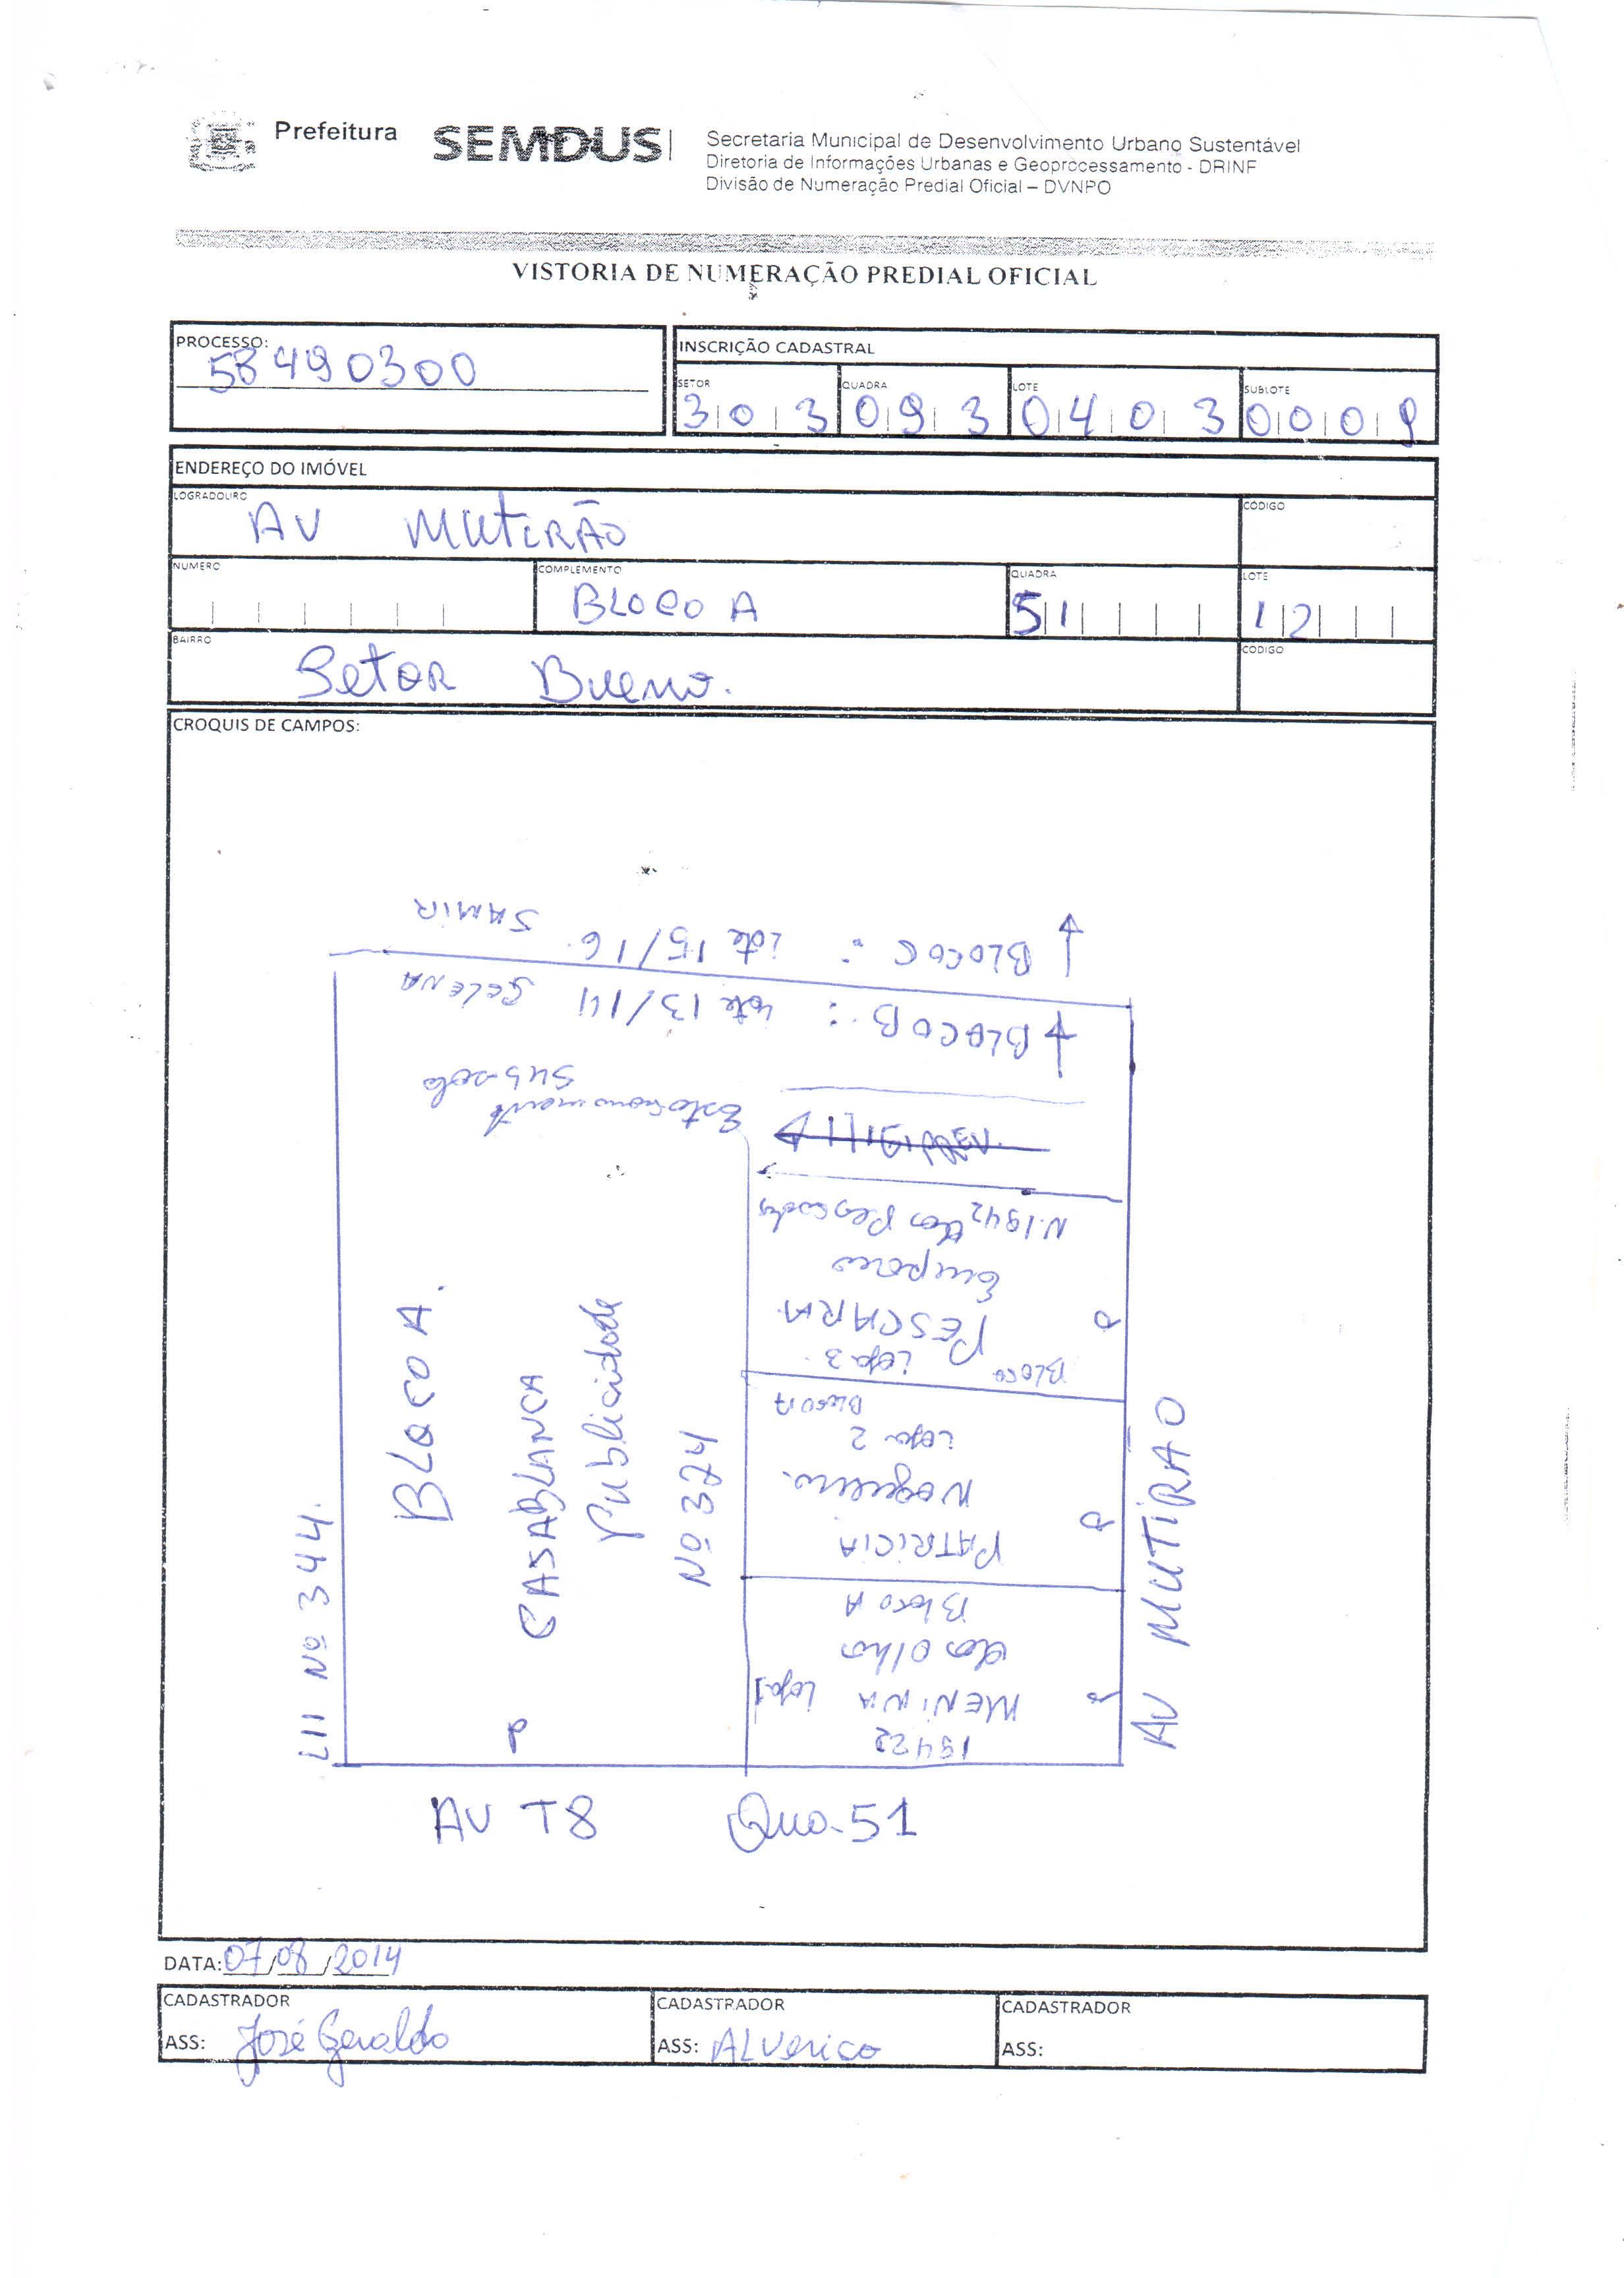 Prefeitura
SEMDUS
Secretaria Municipal de Desenvolvimento Urbano Sustentável
Diretoria de Informações Urbanas e Geoprocessamento - DRINF
Divisão de Numeração Predial Oficial – DVNPO
VISTORIA DE NUMERAÇÃO PREDIAL OFICIAL
PROCESSO:
58490300
INSCRIÇÃO CADASTRAL
SETOR QUADRA LOTE SUBLOTE
303 093 0403 0009
ENDEREÇO DO IMÓVEL
LOGRADOURO
AV MUTIRÃO
CÓDIGO
NUMERO
COMPLEMENTO
BLOCO A
QUADRA
51
LOTE
12
BAIRRO
Setor Bueno.
CÓDIGO
CROQUIS DE CAMPOS:
SAMIR
BLOCO C : lote 15/16
BLOCO B : lote 13/14 SELENA
Estacionamento
Subsolo
N. 1942 dos Pescados
Emporio
PESCARIA
Loja 3
BLOCO
BLOCO A
Loja 2
Nogueira.
PATRICIA
Bloco A
dos Olhos
MENINA Loja 1
BLOCO A.
CASABLANCA
Publicidade
Nº 374
Nº 344.
AV MUTIRAO
AV T8
Qua. 51
DATA: 07/08/2014
CADASTRADOR
ASS: José Geraldo
CADASTRADOR
ASS: ALVerico
CADASTRADOR
ASS: